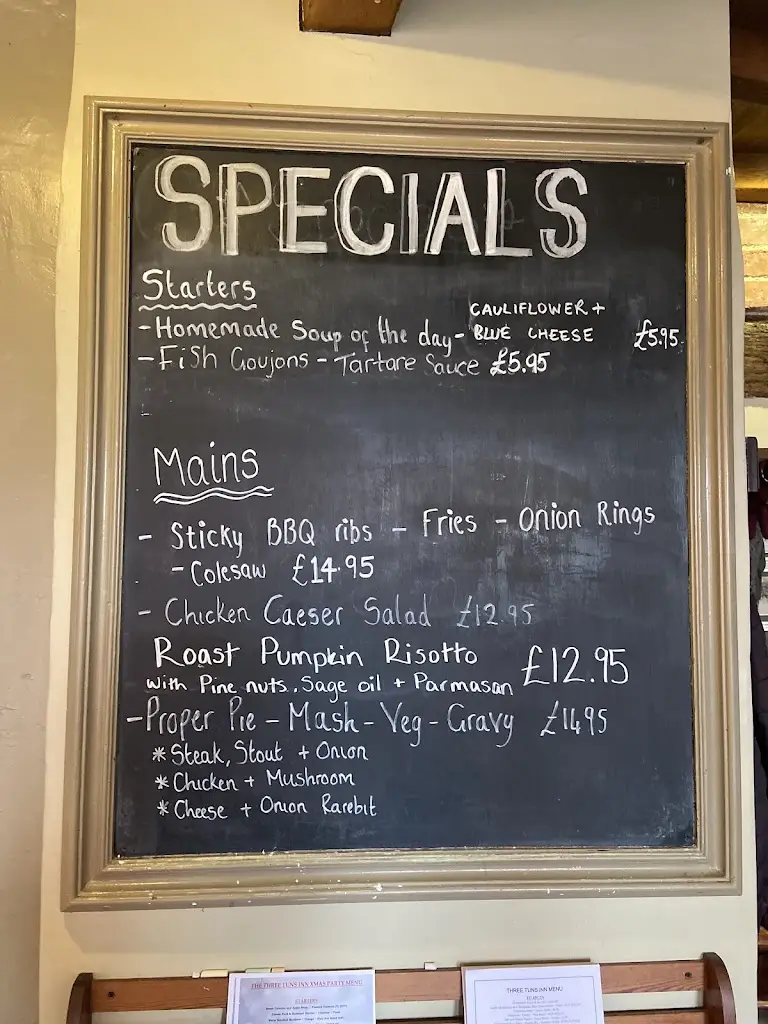 SPECIALS
Starters
- Homemade Soup of the day - CAULIFLOWER + BLUE CHEESE £5.95
- Fish Goujons - Tartare Sauce £5.95
Mains
- Sticky BBQ ribs - Fries - Onion Rings
- Colesaw £14.95
- Chicken Caeser Salad £12.95
Roast Pumpkin Risotto £12.95
with Pine nuts, Sage oil + Parmasan
- Proper Pie - Mash - Veg - Gravy £14.95
* Steak, Stout + Onion
* Chicken + Mushroom
* Cheese + Onion Rarebit
THE THREE TUNS INN XMAS PARTY MENU
STARTERS
THREE TUNS INN MENU